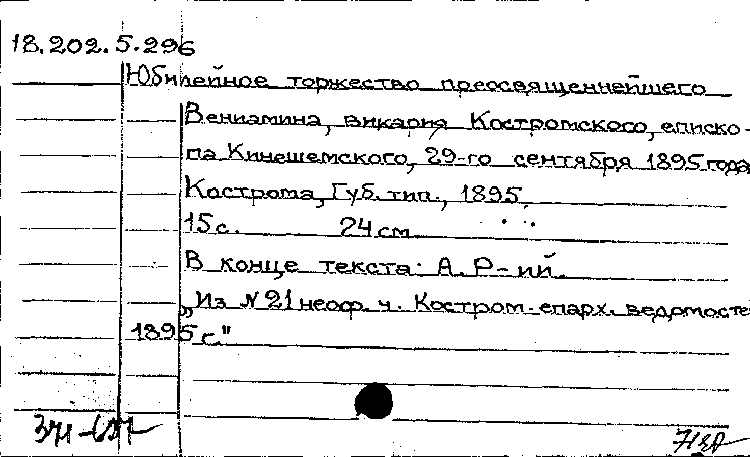 18.202.5.296
Юбилейное торжество преосвященнейшего
Вениамина, викария Костромского, еписко-
па Кинешемского, 29-го сентября 1895 года
Кострома, Губ. тип., 1895.
15 с. 24 см
В конце текста: А. Р-ий.
„Из N 21 неоф. ч. Костром. епарх. ведомосте
1895 г."